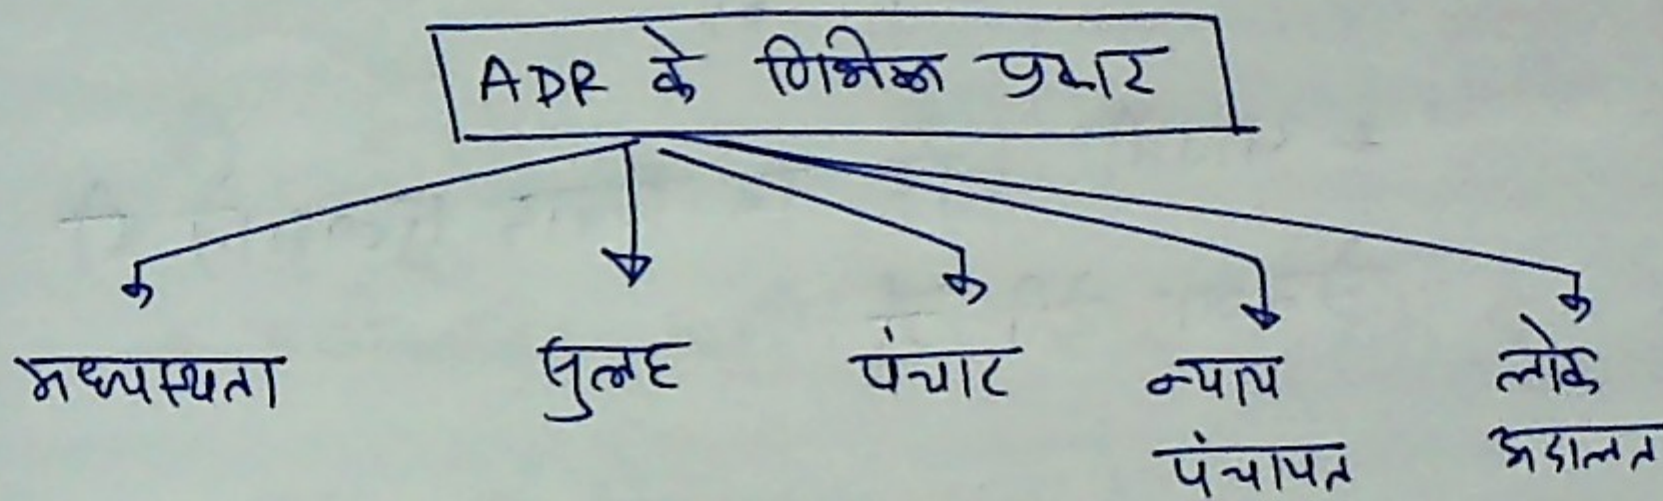 ADR के विभिन्न प्रकार
मध्यस्थता
सुलह
पंचाट
न्याय
पंचायत
लोक
अदालत